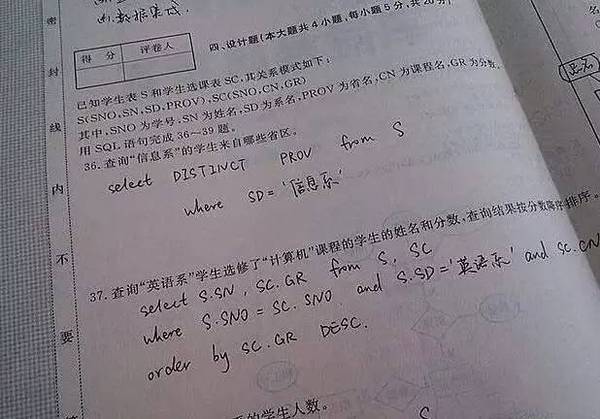 由数据集成.
得 分 评卷人
四、设计题(本大题共4小题,每小题5分,共20分)
已知学生表S和学生选课表SC,其关系模式如下:
S(SNO,SN,SD,PROV),SC(SNO,CN,GR)
其中,SNO为学号,SN为姓名,SD为系名,PROV为省名,CN为课程名,GR为分数。
用SQL语句完成36~39题。
36.查询“信息系”的学生来自哪些省区。
select DISTINCT PROV from S
where SD='信息系'
37.查询“英语系”学生选修了“计算机”课程的学生的姓名和分数,查询结果按分数降序排序。
select S.SN, SC.GR from S, SC
where S.SNO=SC.SNO and S.SD='英语系' and SC.CN
order by SC.GR DESC.
的学生人数。
S
密
封
线
内
不
要